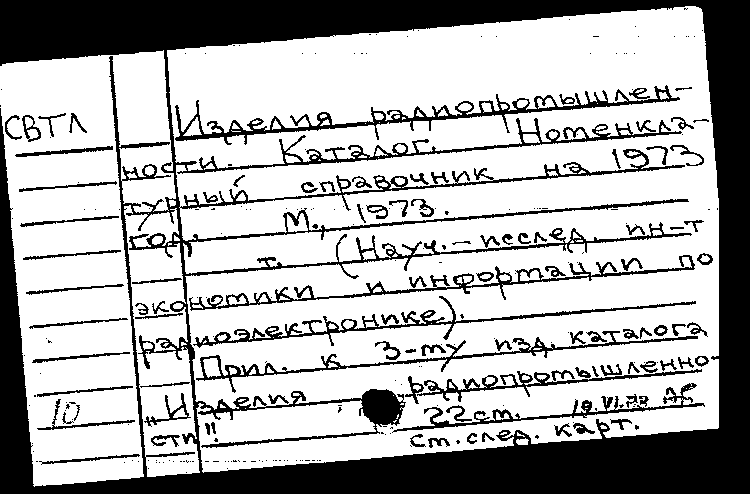 СВТЛ
Изделия радиопромышлен-
ности. Каталог. Номенкла-
турный справочник на 1973
год. М., 1973.
т. (Науч.-исслед. ин-т
экономики и информации по
радиоэлектронике).
Прил. к 3-му изд. каталога
„Изделия радиопромышленно-
сти"
10
22 см.
ст. след. карт.